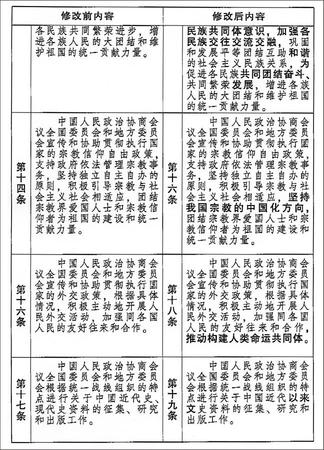 修改前内容
修改后内容
各民族共同繁荣进步，增
进各族人民的大团结和维
护祖国的统一贡献力量。
民族共同体意识，加强各
民族交往交流交融，巩固
和发展平等团结互助和谐
的社会主义民族关系，为
促进各民族共同团结奋斗、
共同繁荣发展，增进各族
人民的大团结和维护祖国
的统一贡献力量。
第十四条
中国人民政治协商会
议全国委员会和地方委员
会宣传和协助贯彻执行国
家的宗教信仰自由政策，
支持政府依法管理宗教事
务，坚持独立自主自办的
原则，积极引导宗教与社
会主义社会相适应，团结
宗教界爱国人士和宗教信
仰者为祖国的建设和统一
贡献力量。
第十六条
中国人民政治协商会
议全国委员会和地方委员
会宣传和协助贯彻执行国
家的宗教信仰自由政策，
支持政府依法管理宗教事
务，坚持独立自主自办的
原则，积极引导宗教与社
会主义社会相适应，坚持
我国宗教的中国化方向，
团结宗教界爱国人士和宗
教信仰者为祖国的建设和
统一贡献力量。
第十六条
中国人民政治协商会
议全国委员会和地方委员
会宣传和协助贯彻执行国
家的外交政策，根据具体
情况，积极主动地开展人
民外交活动，加强同各国
人民的友好往来和合作。
第十八条
中国人民政治协商会
议全国委员会和地方委员
会宣传和协助贯彻执行国
家的外交政策，根据具体
情况，积极主动地开展人
民外交活动，加强同各国
人民的友好往来和合作，
推动构建人类命运共同体。
第十七条
中国人民政治协商会
议全国委员会和地方委员
会根据统一战线组织的特
点进行关于中国近代史、
现代史资料的征集、研究
和出版工作。
第十九条
中国人民政治协商会
议全国委员会和地方委员
会根据统一战线组织的特
点进行关于中国近代以来
文史资料的征集、研究和
出版工作。